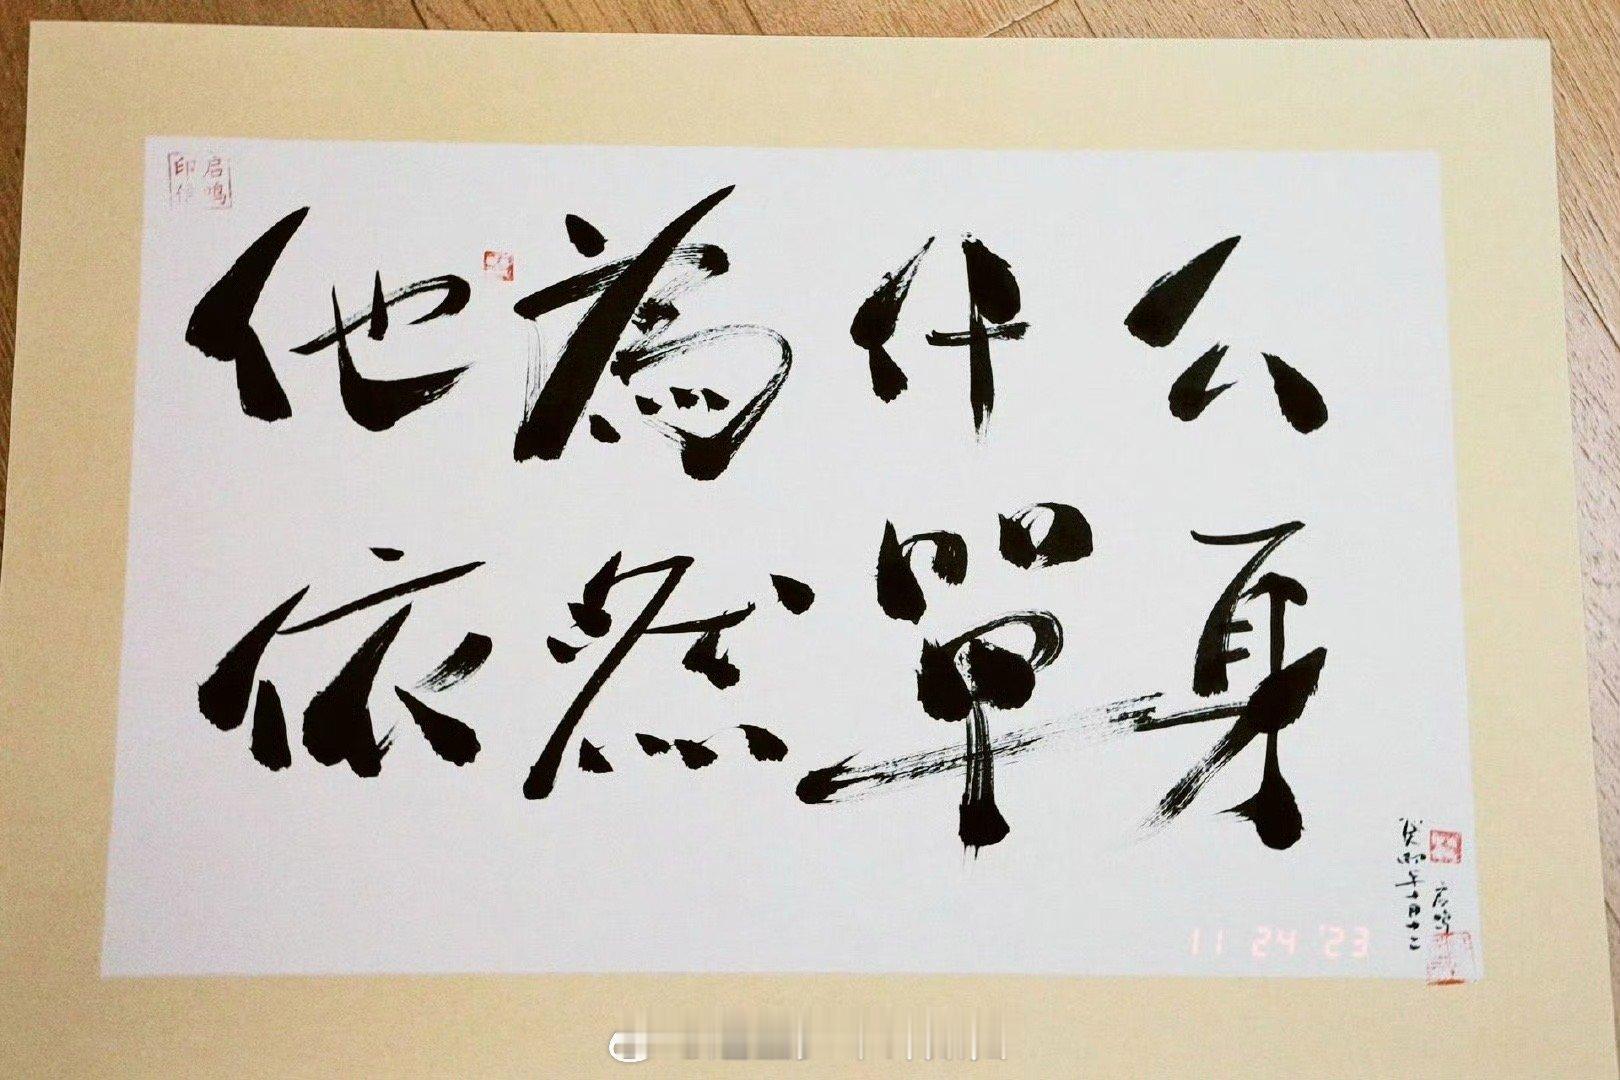 他為什么
依然單身
癸卯年十月十二
启鸣
启鸣
印信
11 24 '23